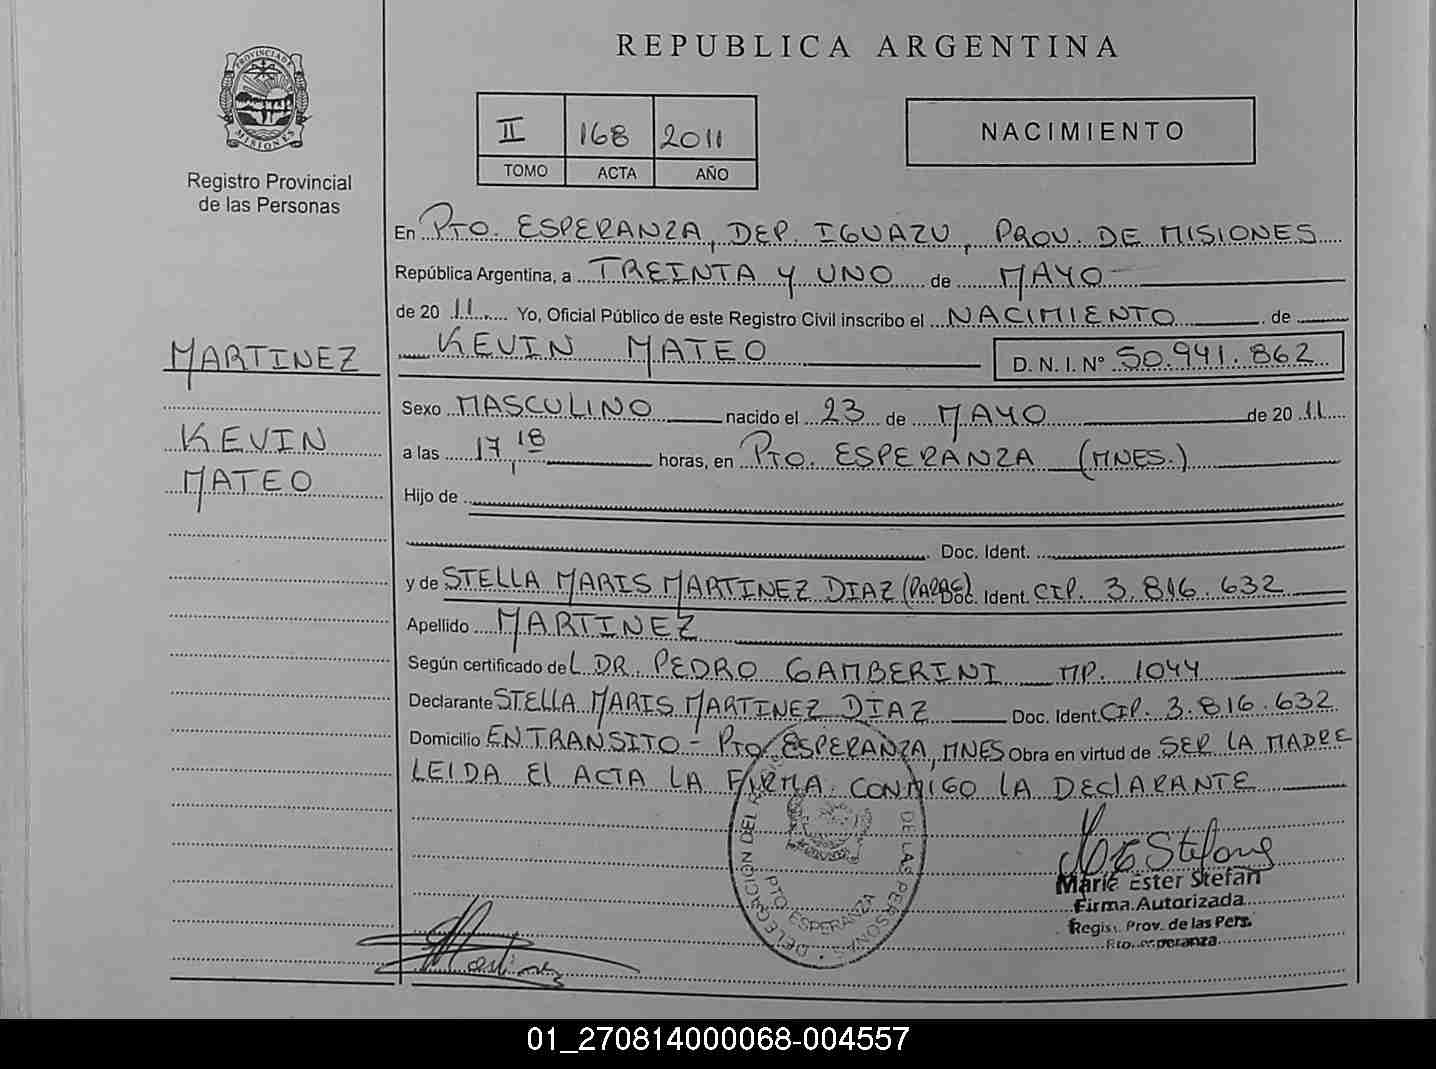 REPUBLICA ARGENTINA
PROVINCIA DE MISIONES
Registro Provincial
de las Personas
II 168 2011
TOMO ACTA AÑO
NACIMIENTO
En PTO. ESPERANZA, DEP. IGUAZU, PROV. DE MISIONES
República Argentina, a TREINTA Y UNO de MAYO
de 20 11 Yo, Oficial Público de este Registro Civil inscribo el NACIMIENTO de
KEVIN MATEO D. N. I. Nº 50.941.862
MARTINEZ
KEVIN
MATEO
Sexo MASCULINO nacido el 23 de MAYO de 20 11
a las 17,18 horas, en PTO. ESPERANZA (MNES.)
Hijo de
Doc. Ident.
y de STELLA MARIS MARTINEZ DIAZ Doc. Ident. CIP. 3.816.632
Apellido MARTINEZ
Según certificado de L DR. PEDRO GAMBERINI MP. 1044
Declarante STELLA MARIS MARTINEZ DIAZ Doc. Ident CIP. 3.816.632
Domicilio EN TRANSITO - PTO. ESPERANZA, MNES Obra en virtud de SER LA MADRE
LEIDA El ACTA LA FIRMA CONMIGO LA DEClARANTE
DELEGACIÓN DEL DE LAS PERSONAS
PTO ESPERANZA
María Ester Stefañ
Firma Autorizada
Regist. Prov. de las Pers.
Pto. esperanza
Martinez
01_270814000068-004557